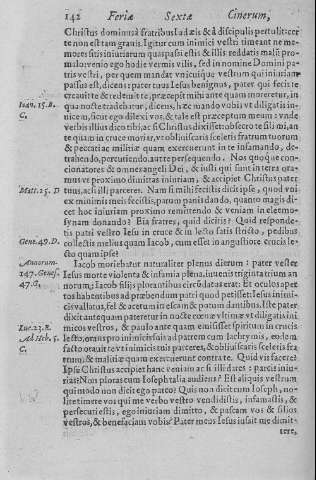 142 Feriæ Sextæ Cinerum,
Christus dominus à fratribus Iudæis & à discipulis pertulit: certe
te non est tam grauis. Igitur cum inimici vestri timeant ne memores
sitis iniuriarum quas passi estis & illis reddatis malū pro
malo: venio ego hodie vermis vilis, sed in nomine Domini patris
vestri, per quem mandat vnicuique vestrum qui iniuriam
passus est, dicens: pater tuus Iesus benignus, pater qui fecit te
creauit te & redemit te, præcepit mihi ante quam moreretur, in
Ioan. 15. B.
qua nocte tradebatur, dicens, hæc mando vobis vt diligatis inuicem,
C.
sicut ego dilexi vos, & tale est præceptum meum: vnde
verbis illius dico tibi, ac si Christus dixisset: obsecro te fili mi, ante
quam in cruce moriar, vt obliuiscaris sceleris fratrum tuorum
& peccati ac militiæ quam exercuerunt in te infamando, detrahendo,
percutiendo, aut te persequendo. Nos quoque concionatores
& omnes angeli Dei, & iusti qui sunt in terra oramus
vt proximo dimittas iniuriam, & accipiet Christus pater
Matt. 25. D
tuus, ac si illi parceres. Nam si mihi fecistis dicit ipse, quod vni
ex minimis meis fecistis, panum panis dando, quanto magis dicet
hoc iniuriam proximo remittendo & veniam in eleemosynam
donando? Eia fratres, quid dicitis? Quid respondetis
patri vestro Iesu in cruce & in lecto satis stricto, pedibus
Gene. 49. D.
collectis melius quam Iacob, cum esset in angustiore crucis lecto
quam ipse?
Annorum
Iacob moriebatur naturaliter plenus dierum: pater vester
147. Genes.
Iesus morte violenta & infamia plena, iuuenis triginta trium annorum;
47. G.
Iacob filijs plorantibus circūdatus erat: Et oculos apertos
habentibus ad præbendum ei potum quod petijsset: Iesus inimicis
vallatus, fel & acetum in escam & potum dantibus. Iste pater
dixit antequam pateretur in nocte cœnæ vltimæ vt diligatis inimicos
Luc. 23. E.
vestros, & paulo ante quam emisisset spiritum in crucis
Ad Heb. 5.
lecto, orans pro inimicis fusa ad patrem cum lachrymis, eodem
C.
facto orauit te vt inimicis tuis parceres, & obliuiscaris sceleris fratrum
& malitiæ quam exercuerunt contra te. Quid vis facere?
Ipse Christus accipiet hanc veniam ac si illi dares: parcis iniuriarum?
Non ploras cum Ioseph talia audiens? Est aliquis vestrum
qui modo non dicit ego parco? Quis non dicit cum Ioseph, nolite
timere vos qui me verbo vestro vendidistis, infamastis, &
persecuti estis, ego iniuriam dimitto, & pascam vos & filios
vestros, & benefaciam vobis? Pater meus Iesus iussit me dimittere,